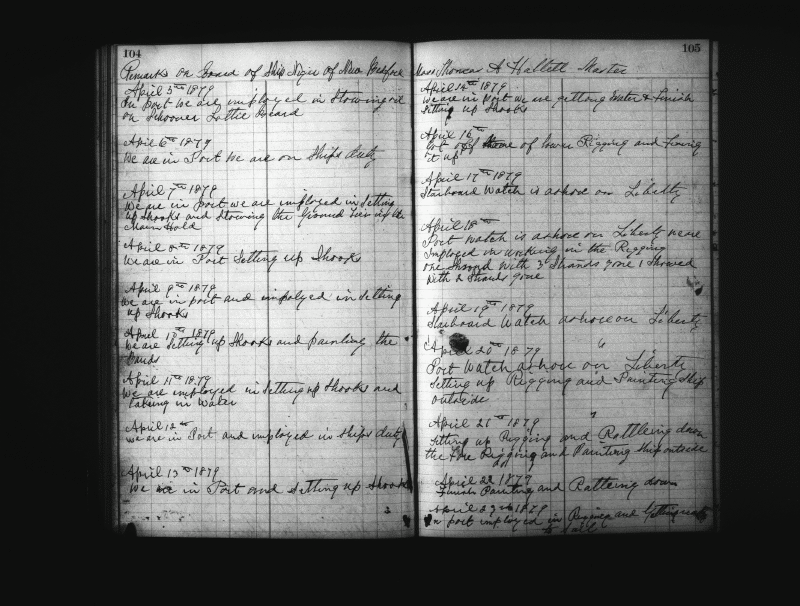 104
Remarks on Board of Ship Niger of New Bedford
April 5th 1879
In port we are imployed in Stowing oil
on Schooner Lottie Beard
April 6th 1879
We are in Port we are on Ships duty
April 7th 1879
We are in port we are imployed in Setting
up Shooks and Stowing the Ground Tier in the
Main Hold
April 8th 1879
We are in Port Setting up Shooks
April 9th 1879
We are in port and imployed in Setting
up Shooks
April 10th 1879
We are Setting up Shooks and painting the
April 11th 1879
We are imployed in Setting up Shooks and
takeing in Water
April 12th
We are in Port and imployed in Ships duty
April 13th 1879
We are in Port and Setting up Shooks
105
Mass Thomas A Hallett Master
April 14th 1879
We are in Port we are getting Water & Finish
Setting up Shooks
April 16th
of lower Rigging and
it up
April 17th 1879
Starboard Watch is ashore on Liberty
April 18th
Port watch is ashore on Liberty we are
Imployed in working in the Rigging
one Shroud with 3 Strands gone 1 Shroud
with 2 Strands gone
April 19th 1879
Starboard Watch ashore on Liberty
April 20th 1879
Port Watch ashore on Liberty
Setting up Rigging and Painting Ship
outside
April 21st 1879
Setting up Rigging and Rattleing down
the Fore Rigging and Painting Ship outside
April 22 1879
Finish Painting and Rattleing down
April 23rd 1879
In port imployed in Rigging and Getting ready
to Sail